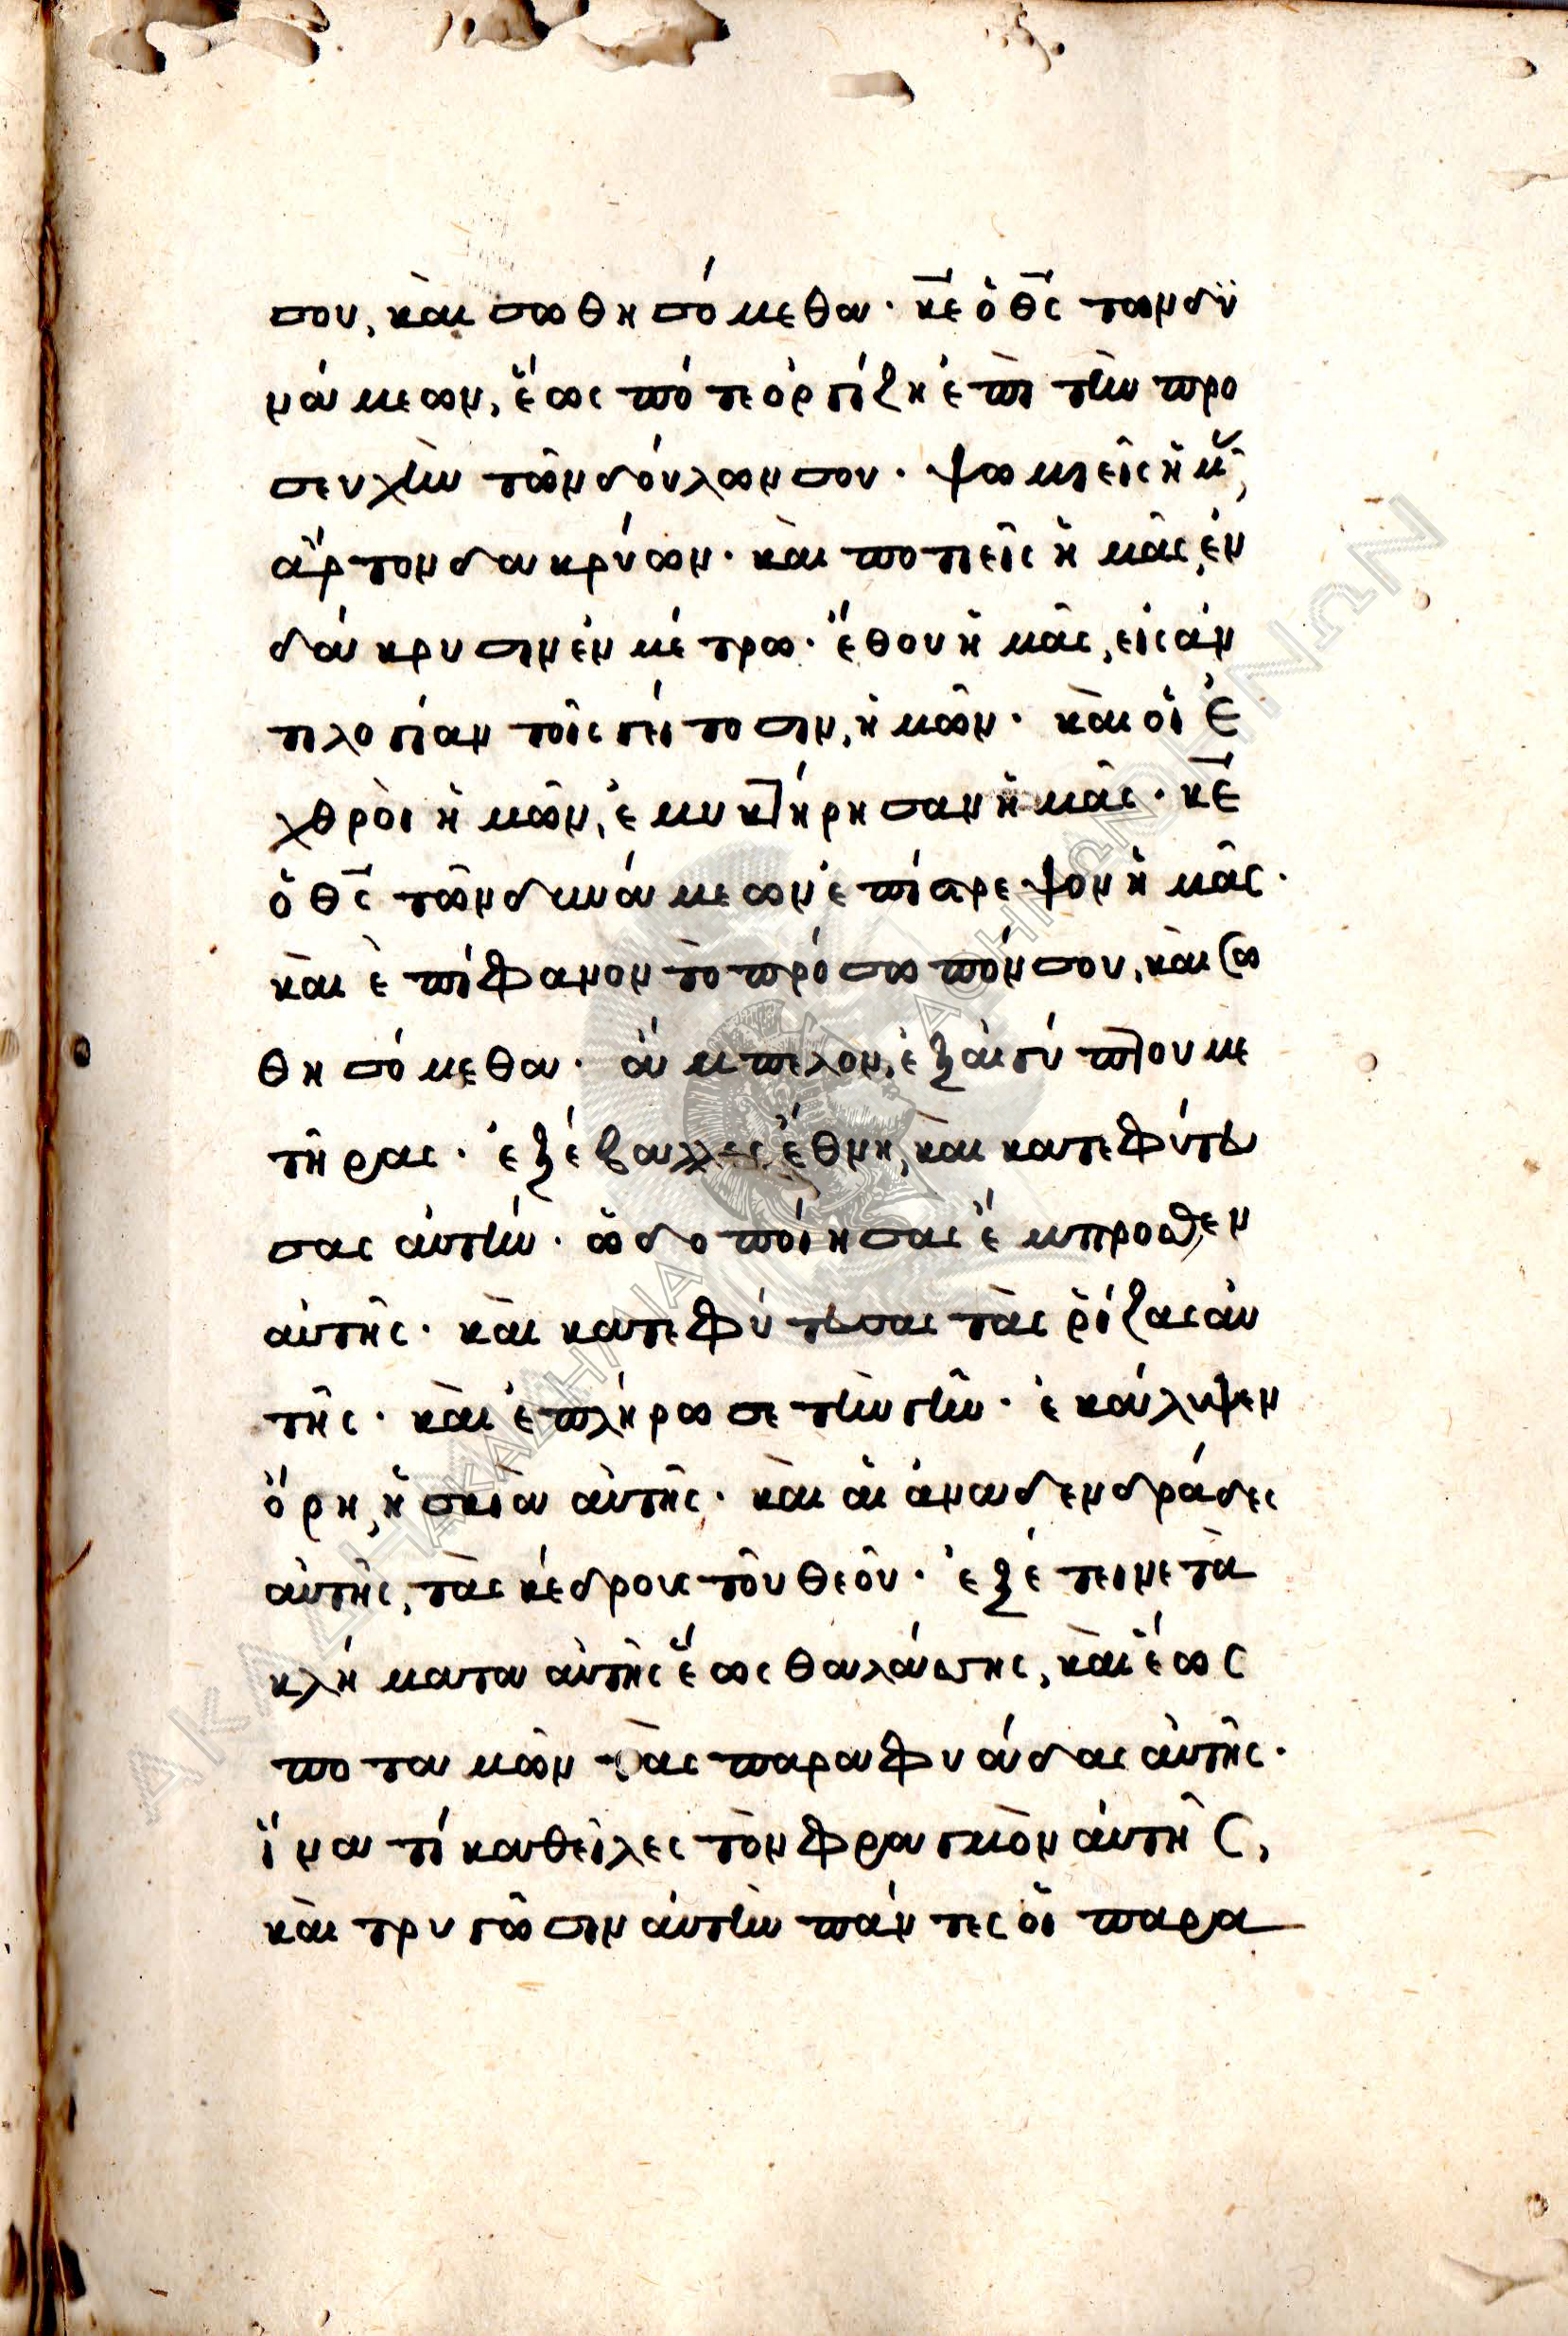 σου, καὶ σωθησόμεθα· κ̅ε̅ ὁ θ̅ς̅ τῶν δυ
νάμεων, ἕως πότε ὀργίζη ἐπὶ τὴν προ
σευχὴν τῶν δούλων σου· ψωμιεῖς ἡμᾶς,
ἄρτον δακρύων· καὶ ποτιεῖς ἡμᾶς, ἐν
δάκρυσιν ἐν μέτρω· ἔθου ἡμᾶς, εἰς ἀν
τιλογίαν τοῖς γείτοσιν, ἡμῶν· καὶ οἱ ἐ
χθροὶ ἡμῶν, ἐμυκτήρησαν ἡμᾶς· κ̅ε̅
ὁ θ̅ς̅ τῶν δυνάμεων ἐπίστρεψον ἡμᾶς·
καὶ ἐπίφανον τὸ πρόσωπόν σου, καὶ σω
θησόμεθα· ἄμπελον, ἐξ αἰγύπτου με
τῆρας· ἐξέβαλλες ἔθνη, καὶ κατεφύτευ
σας αὐτήν· ὡδοποίησας ἔμπροσθεν
αὐτῆς· καὶ κατεφύτευσας τὰς ῥίζας αὐ
τῆς· καὶ ἐπλήρωσε τὴν γῆν· ἐκάλυψεν
ὄρη, ἡ σκιὰ αὐτῆς· καὶ αἱ ἀναδενδράδες
αὐτῆς, τὰς κέδρους τοῦ θεοῦ· ἐξέτεινε τὰ
κλήματα αὐτῆς ἕως θαλάσσης, καὶ ἕως
ποταμῶν τὰς παραφυάδας αὐτῆς·
ἵνα τί καθεῖλες τὸν φραγμὸν αὐτῆς,
καὶ τρυγῶσιν αὐτὴν πάντες οἱ παρα
ΑΚΑΔΗΜΙΑ ΑΘΗΝΩΝ
ΑΚΑΔΗΜΙΑ ΑΘΗΝΩΝ